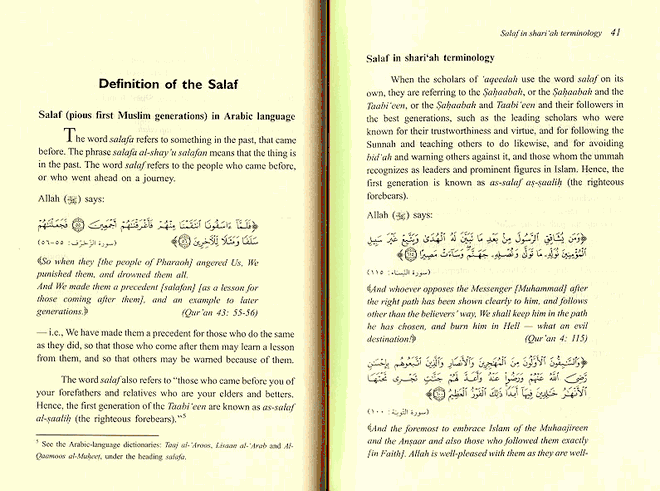 Definition of the Salaf
Salaf (pious first Muslim generations) in Arabic language
The word salafa refers to something in the past, that came
before. The phrase salafa al-shay'u salafan means that the thing is
in the past. The word salaf refers to the people who came before,
or who went ahead on a journey.
Allah (ﷻ) says:
﴿فَلَمَّآ ءَاسَفُونَا ٱنتَقَمْنَا مِنْهُمْ فَأَغْرَقْنَٰهُمْ أَجْمَعِينَ ۝ فَجَعَلْنَٰهُمْ
سَلَفًا وَمَثَلًا لِّلْءَاخِرِينَ ۝﴾ (سورة الزخرف: ٥٥-٥٦)
﴿So when they [the people of Pharaoh] angered Us, We
punished them, and drowned them all.
And We made them a precedent [salafan] [as a lesson for
those coming after them], and an example to later
generations.﴾ (Qur'an 43: 55-56)
— i.e., We have made them a precedent for those who do the same
as they did, so that those who come after them may learn a lesson
from them, and so that others may be warned because of them.
The word salaf also refers to "those who came before you of
your forefathers and relatives who are your elders and betters.
Hence, the first generation of the Taabi'een are known as as-salaf
al-ṣaaliḥ (the righteous forebears)."⁵
⁵ See the Arabic-language dictionaries: Tauj al-'Aroos, Lisaan al-'Arab and Al-
Qaamoos al-Muḥeeṭ, under the heading salafa.
Salaf in shari'ah terminology 41
Salaf in shari'ah terminology
When the scholars of 'aqeedah use the word salaf on its
own, they are referring to the Ṣaḥaabah, or the Ṣaḥaabah and the
Taabi'een, or the Ṣaḥaabah and Taabi'een and their followers in
the best generations, such as the leading scholars who were
known for their trustworthiness and virtue, and for following the
Sunnah and teaching others to do likewise, and for avoiding
bid'ah and warning others against it, and those whom the ummah
recognizes as leaders and prominent figures in Islam. Hence, the
first generation is known as as-salaf aṣ-ṣaaliḥ (the righteous
forebears).
Allah (ﷻ) says:
﴿وَمَن يُشَاقِقِ ٱلرَّسُولَ مِنۢ بَعْدِ مَا تَبَيَّنَ لَهُ ٱلْهُدَىٰ وَيَتَّبِعْ غَيْرَ سَبِيلِ
ٱلْمُؤْمِنِينَ نُوَلِّهِۦ مَا تَوَلَّىٰ وَنُصْلِهِۦ جَهَنَّمَ وَسَآءَتْ مَصِيرًا ۝﴾
(سورة النساء: ١١٥)
﴿And whoever opposes the Messenger [Muhammad] after
the right path has been shown clearly to him, and follows
other than the believers' way, We shall keep him in the path
he has chosen, and burn him in Hell — what an evil
destination!﴾ (Qur'an 4: 115)
﴿وَٱلسَّٰبِقُونَ ٱلْأَوَّلُونَ مِنَ ٱلْمُهَٰجِرِينَ وَٱلْأَنصَارِ وَٱلَّذِينَ ٱتَّبَعُوهُم بِإِحْسَٰنٍ
رَّضِىَ ٱللَّهُ عَنْهُمْ وَرَضُوا۟ عَنْهُ وَأَعَدَّ لَهُمْ جَنَّٰتٍ تَجْرِى تَحْتَهَا
ٱلْأَنْهَٰرُ خَٰلِدِينَ فِيهَآ أَبَدًا ذَٰلِكَ ٱلْفَوْزُ ٱلْعَظِيمُ ۝﴾
(سورة التوبة: ١٠٠)
﴿And the foremost to embrace Islam of the Muhaajireen
and the Anṣaar and also those who followed them exactly
[in Faith]. Allah is well-pleased with them as they are well-